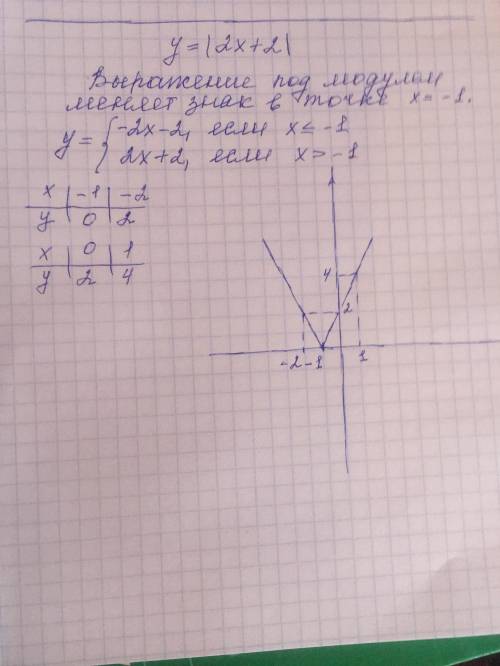 y=|2x+2|
Выражение под модулем
меняет знак в точке x=-1.
y={-2x-2, если x≤-1
2x+2, если x>-1
x | -1 | -2
y | 0 | 2
x | 0 | 1
y | 2 | 4
4
2
-2 -1 1